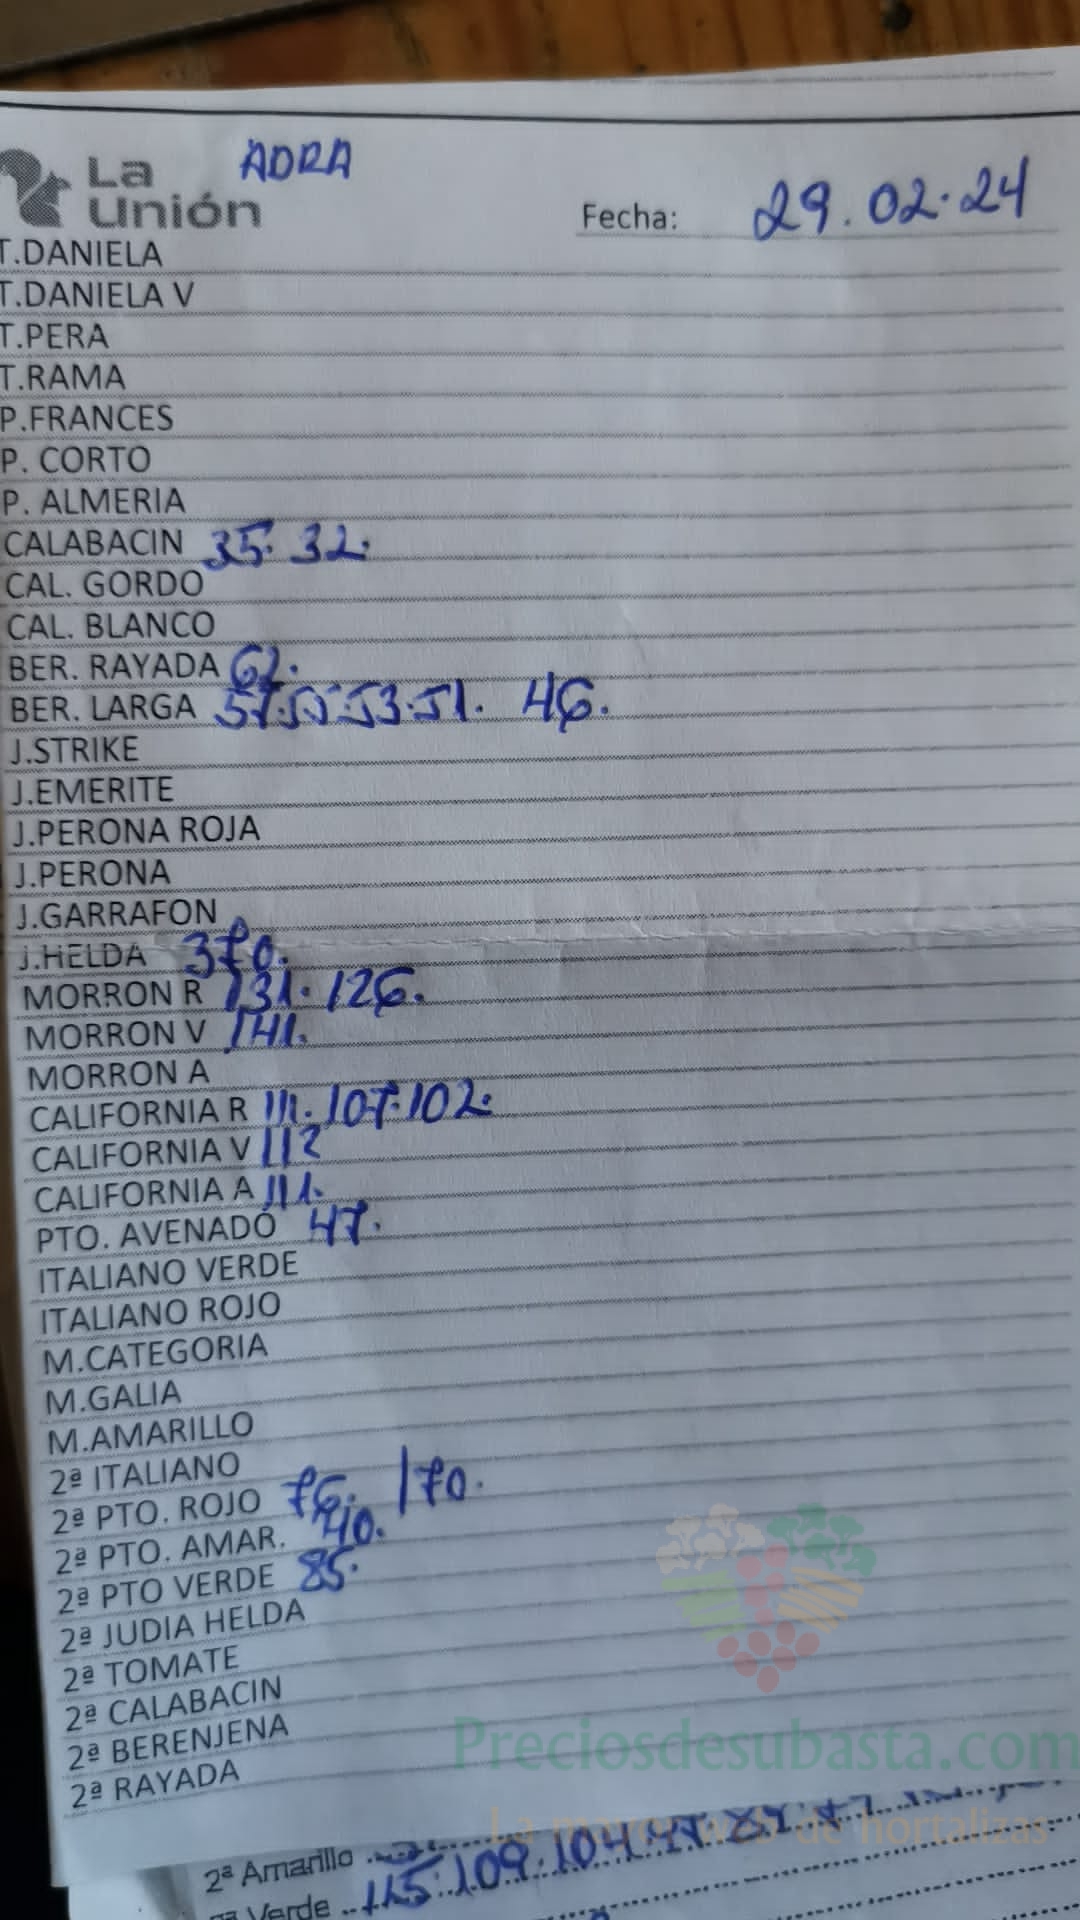 La Unión ADRA
Fecha: 29.02.24
T.DANIELA
T.DANIELA V
T.PERA
T.RAMA
P.FRANCES
P. CORTO
P. ALMERIA
CALABACIN 35. 32.
CAL. GORDO
CAL. BLANCO
BER. RAYADA 62.
BER. LARGA 57.55.53.51. 46.
J.STRIKE
J.EMERITE
J.PERONA ROJA
J.PERONA
J.GARRAFON
J.HELDA 370.
MORRON R 131. 126.
MORRON V 141.
MORRON A
CALIFORNIA R 111. 107.102.
CALIFORNIA V 112
CALIFORNIA A 111.
PTO. AVENADO 47.
ITALIANO VERDE
ITALIANO ROJO
M.CATEGORIA
M.GALIA
M.AMARILLO
2ª ITALIANO
2ª PTO. ROJO 76. 170.
2ª PTO. AMAR. 40.
2ª PTO VERDE 85.
2ª JUDIA HELDA
2ª TOMATE
2ª CALABACIN
2ª BERENJENA
2ª RAYADA
Preciosdesubasta.com
La mayor web de hortalizas
2ª Amarillo
Verde 115.109.104